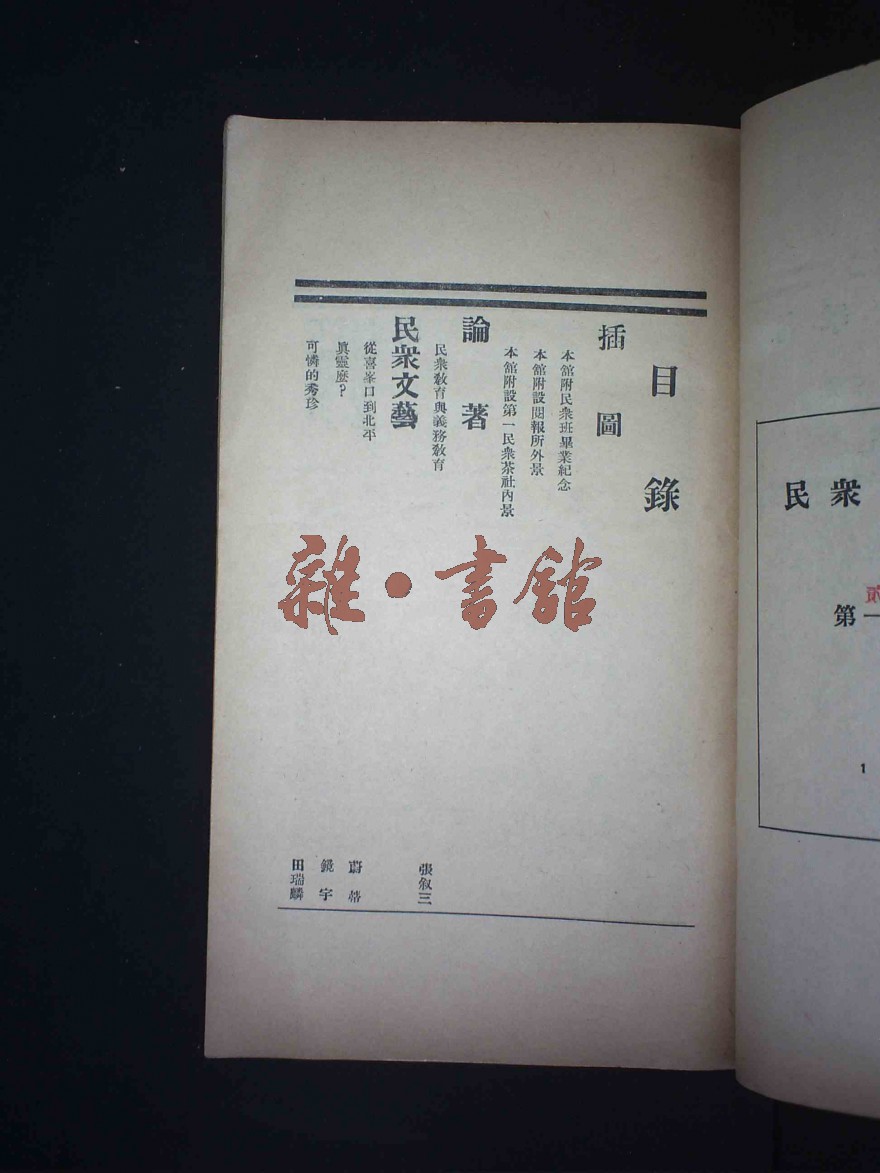 目錄
插圖
本舘附民衆班畢業紀念
本舘附設閱報所外景
本舘附設第一民衆茶社內景
論著
民衆敎育與義務敎育
張叙三
民衆文藝
從喜峯口到北平
蔚蒂
眞靈麽？
鏡宇
可憐的秀珍
田瑞麟
雜·書舘
民衆
第一
1